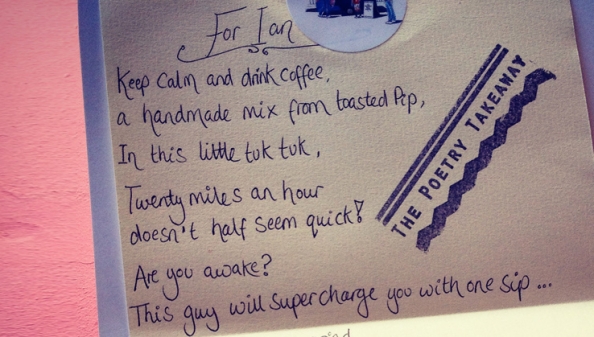 For Ian
Keep calm and drink coffee,
a handmade mix from toasted Pip,
In this little tuk tuk,
Twenty miles an hour
doesn't half seem quick!
Are you awake?
This guy will supercharge you with one sip ...
THE POETRY TAKEAWAY